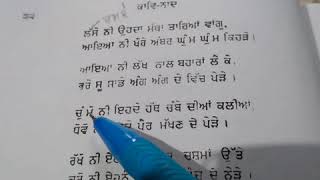 ਕਾਵਿ-ਨਾਦ
ਲੱਸੋ ਨੀ ਉਹਦਾ ਮੱਥਾ ਤਾਰਿਆਂ ਵਾਂਗੂ,
ਆਇਆ ਨੀ ਖੌਰੇ ਅੰਬਰ ਘੁੰਮ ਘੁੰਮ ਕਿਹੜੇ।
ਆਇਆ ਨੀ ਲੱਖ ਨਾਲ ਬਹਾਰਾਂ ਲੈ ਕੇ,
ਭਰੇ ਸੂ ਸਾਡੇ ਅੰਗ ਅੰਗ ਦੇ ਵਿੱਚ ਪੇੜੇ।
ਚੁੰਮੋ ਨੀ ਇਹਦੇ ਹੱਥ ਚੰਬੇ ਦੀਆਂ ਕਲੀਆਂ,
ਧੋਵੋ ਪੈਰ ਮੱਖਣ ਦੇ ਪੇੜੇ।
ਰੱਖੋ ਨੀ ਚਸ਼ਮਾਂ ਉੱਤੇ
ਦੇ ਨੇੜੇ।